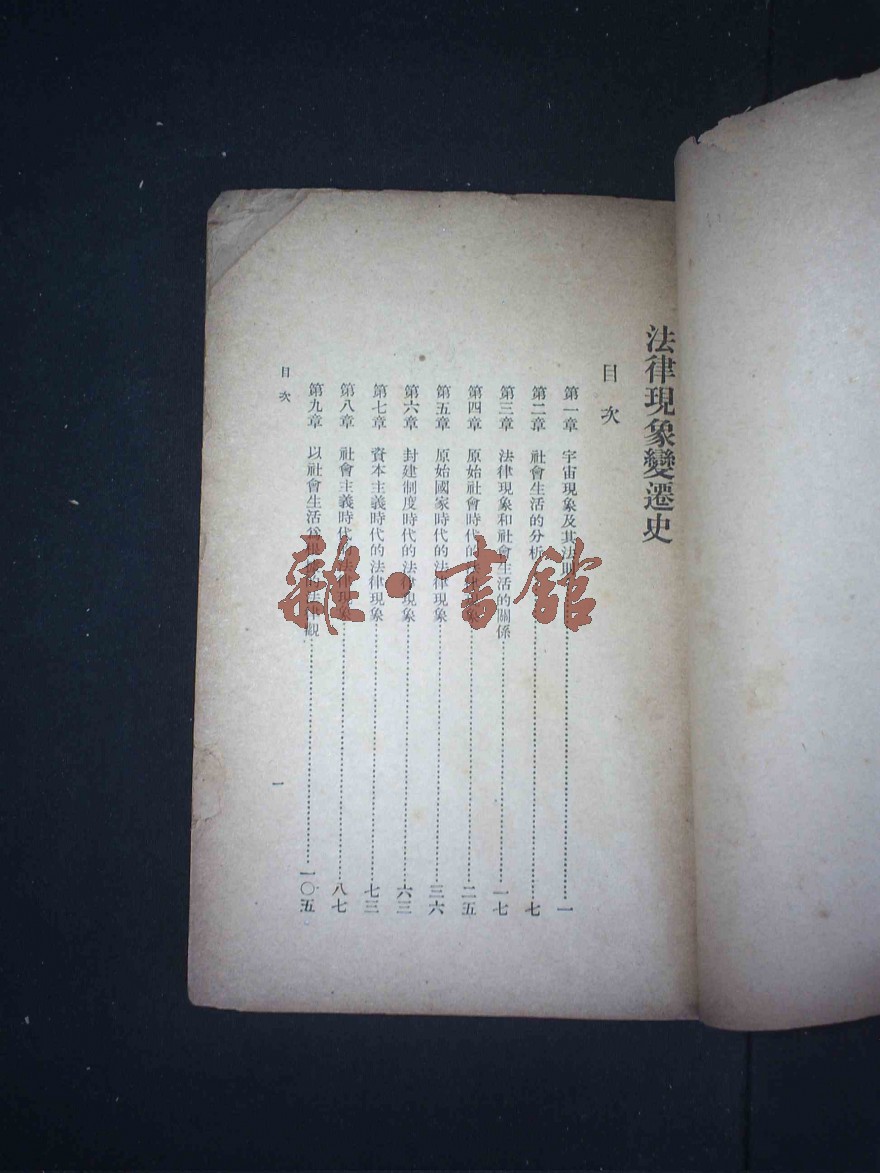 法律現象變遷史
目次
第一章 宇宙現象及其法則……一
第二章 社會生活的分析……七
第三章 法律現象和社會生活的關係……一七
第四章 原始社會時代的法律現象……二五
第五章 原始國家時代的法律現象……三六
第六章 封建制度時代的法律現象……六三
第七章 資本主義時代的法律現象……七三
第八章 社會主義時代的法律現象……八七
第九章 以社會生活為根據的法律觀……一〇五
目次
一
雜·書館